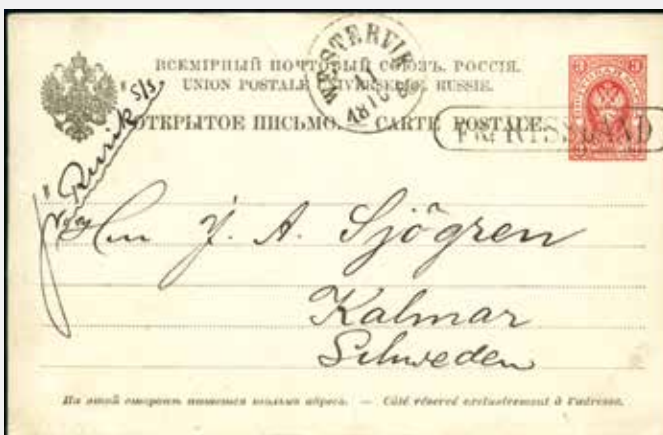 ВСЕМІРНЫЙ ПОЧТОВЫЙ СОЮЗЪ. РОССІЯ.
UNION POSTALE UNIVERSELLE. RUSSIE.
ОТКРЫТОЕ ПИСЬМО. — CARTE POSTALE.
WESTERVIK
3
3
"Rurik" s/s
FRÅN RYSSLAND
J. A. Sjögren
Kalmar
Schweden
На этой сторонѣ пишется только адресъ. — Côté réservé exclusivement à l'adresse.